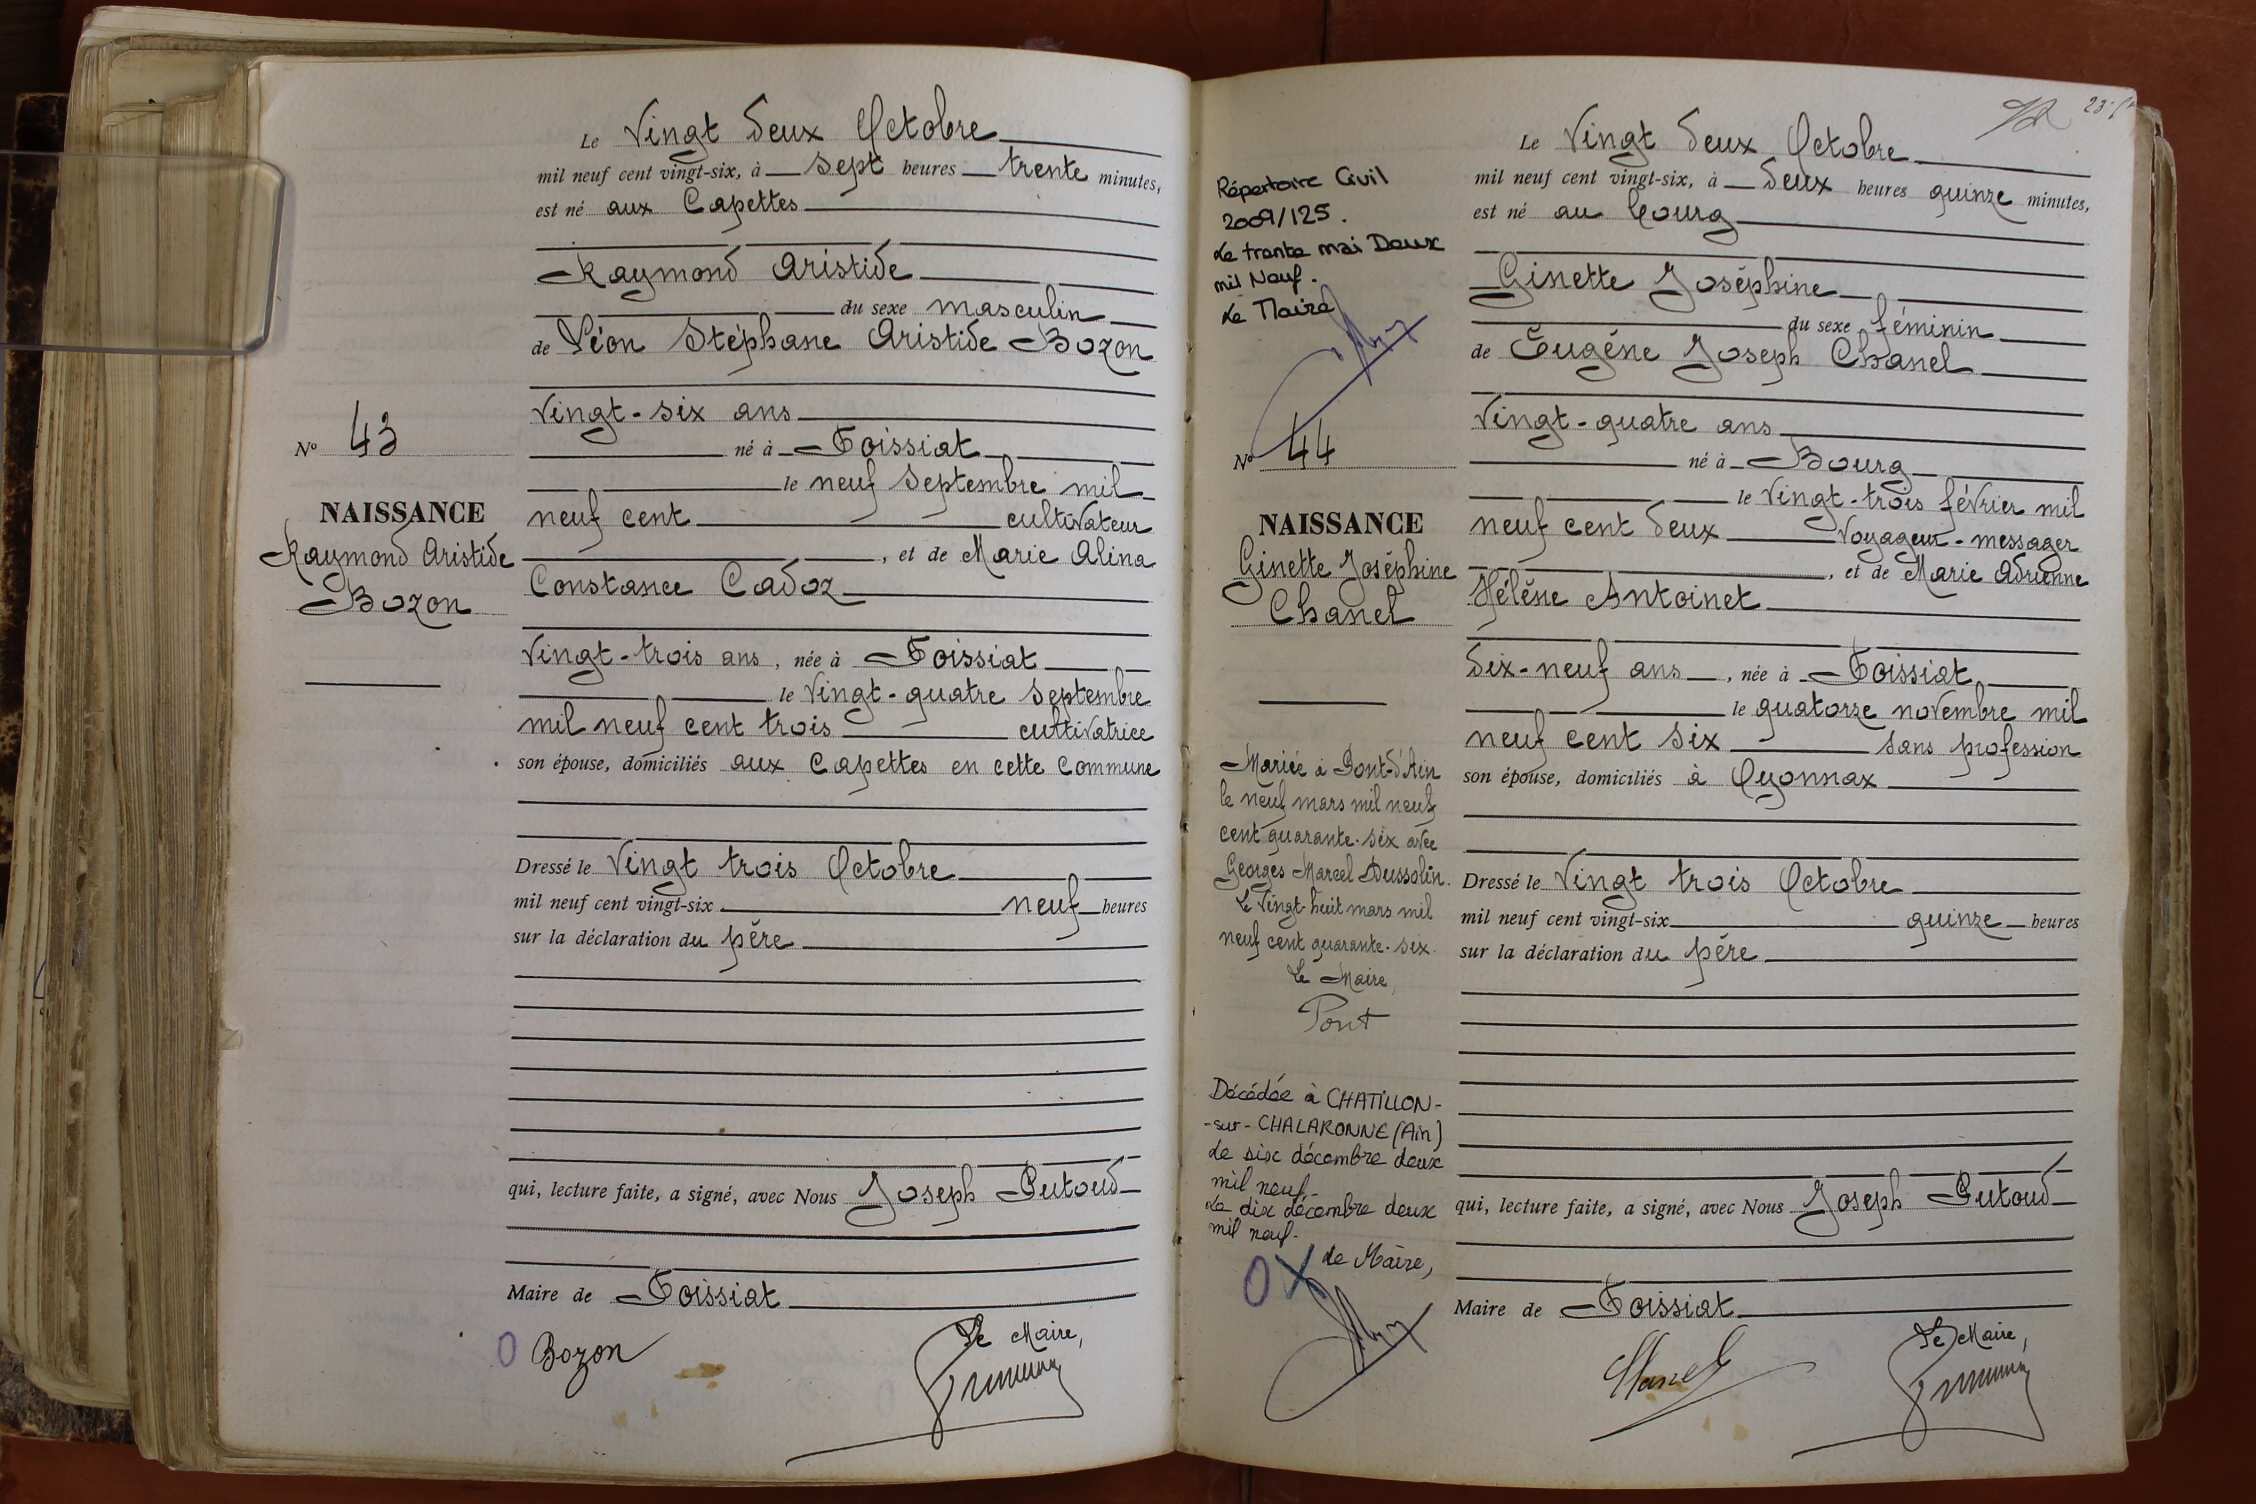 Le Vingt deux Octobre
mil neuf cent vingt-six, à sept heures trente minutes,
est né aux Capettes
Raymond Aristide
du sexe masculin
de Léon Stéphane Aristide Bozon
Vingt-six ans
né à Foissiat
le neuf Septembre mil
neuf cent cultivateur
, et de Marie Alina
Constance Cadoz
Vingt-trois ans, née à Foissiat
le Vingt-quatre Septembre
mil neuf cent trois cultivatrice
son épouse, domiciliés aux Capettes en cette Commune
Dressé le Vingt trois Octobre
mil neuf cent vingt-six neuf heures
sur la déclaration du père
qui, lecture faite, a signé, avec Nous Joseph Putoud
Maire de Foissiat
Le Maire,
O Bozon
No 43
NAISSANCE
Raymond Aristide
Bozon
23
Le Vingt deux Octobre
mil neuf cent vingt-six, à deux heures quinze minutes,
est né au bourg
Ginette Joséphine
du sexe féminin
de Eugène Joseph Chanel
Vingt-quatre ans
né à Bourg
le Vingt-trois février mil
neuf cent deux Voyageur-messager
, et de Marie Adrienne
Hélène Antoinet
dix-neuf ans, née à Foissiat
le quatorze novembre mil
neuf cent six sans profession
son épouse, domiciliés à Oyonnax
Dressé le Vingt trois Octobre
mil neuf cent vingt-six quinze heures
sur la déclaration du père
qui, lecture faite, a signé, avec Nous Joseph Putoud
Maire de Foissiat
Le Maire,
Chanel
Répertoire Civil
2009/125.
Le trente mai Deux
mil Neuf.
Le Maire
No 44
NAISSANCE
Ginette Joséphine
Chanel
Mariée à Pont-d'Ain
le neuf mars mil neuf
cent quarante-six avec
Georges Marcel Dussolin.
Le Vingt-huit mars mil
neuf cent quarante-six.
Le Maire,
Pont
Décédée à CHATILLON-
-sur-CHALARONNE (Ain)
le six décembre deux
mil neuf.
Le dix décembre deux
mil neuf.
Le Maire,
OX